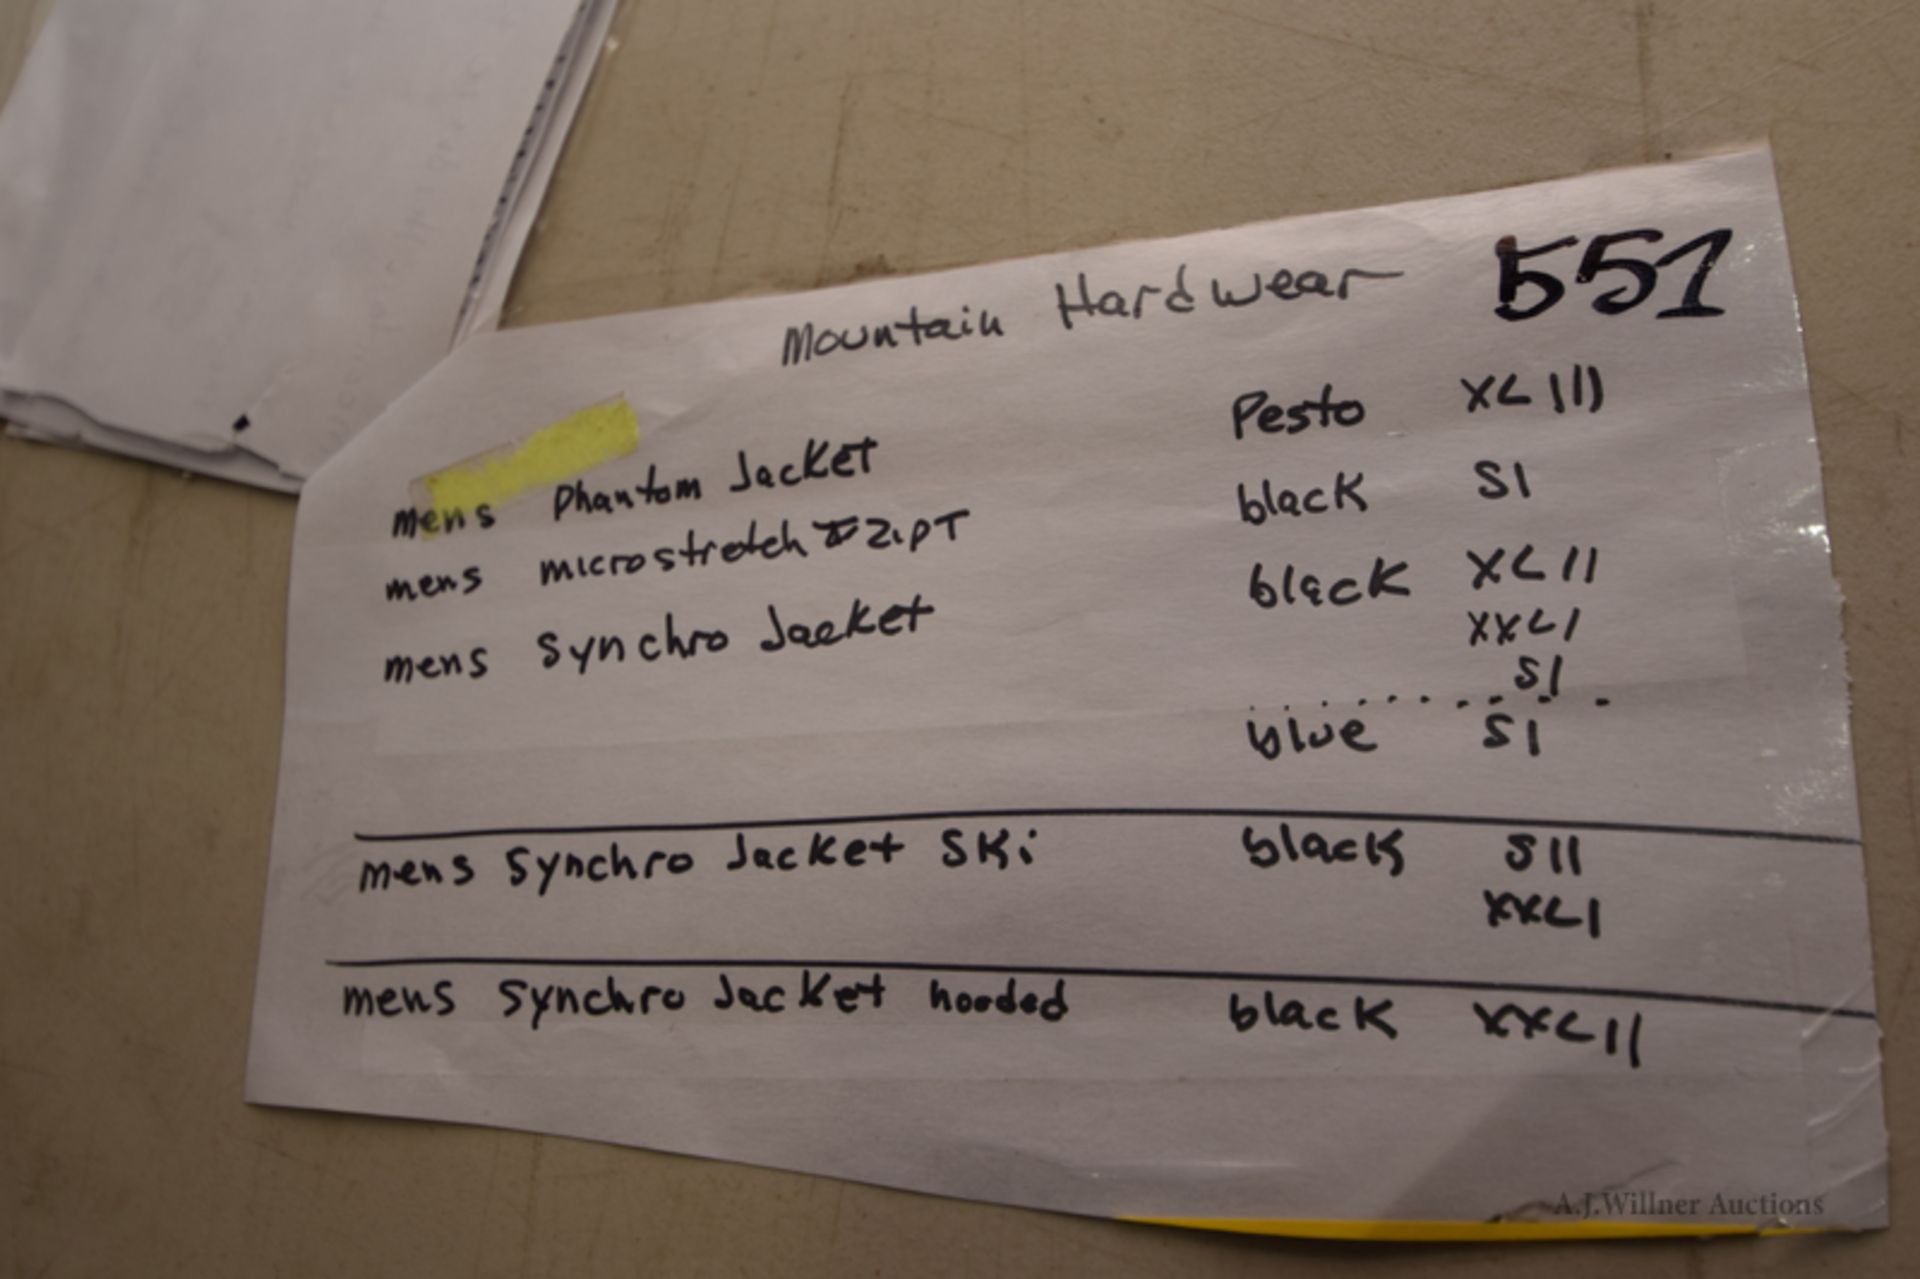 551
Mountain Hardwear
mens Phantom Jacket Pesto XL III
mens microstretch ZipT black S I
mens Synchro Jacket black XL II
XXL I
S I
blue S I
mens Synchro Jacket SKi black S II
XXL I
mens Synchro Jacket hooded black XXL II
A.J.Willner Auctions